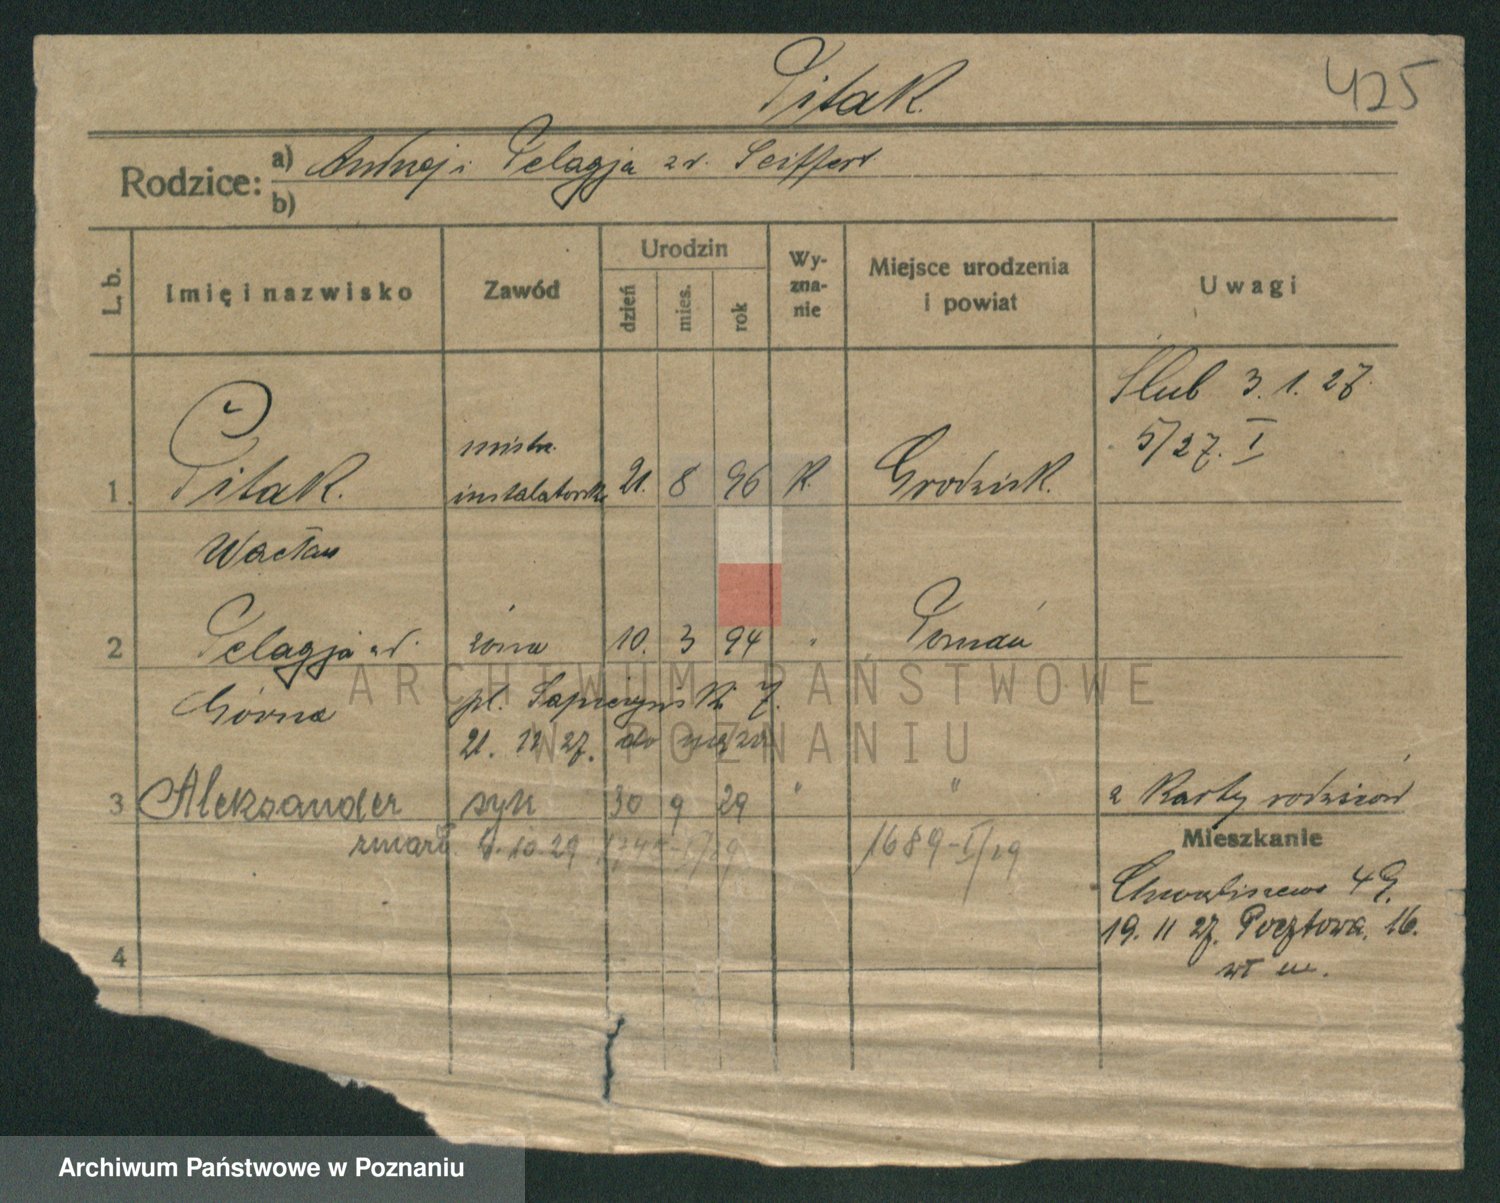 Pitak.
425
Rodzice: a) Andrzej i Pelagja z d. Seiffert
b)
L. b.
Imię i nazwisko
Zawód
Urodzin
dzień
mies.
rok
Wy-
zna-
nie
Miejsce urodzenia
i powiat
Uwagi
Ślub 3. 1. 27.
5/27. I
1. Pitak. mistrz. instalatorski 21. 8 96 k. Grodzisk.
Wacław
2 Pelagja z d. żona 10. 3 94 " Poznań
Górna pl. Sapieżyński 7.
21. 12 27. do męża
3 Aleksander syn 30 9 29 " " z karty rodziców
zmarł 9. 10. 29 1745-I/29 1689-I/29
Mieszkanie
Chwaliszewo 49.
19. 11 27. Pocztowa. 16.
wł m.
4
ARCHIWUM PAŃSTWOWE
W POZNANIU
Archiwum Państwowe w Poznaniu